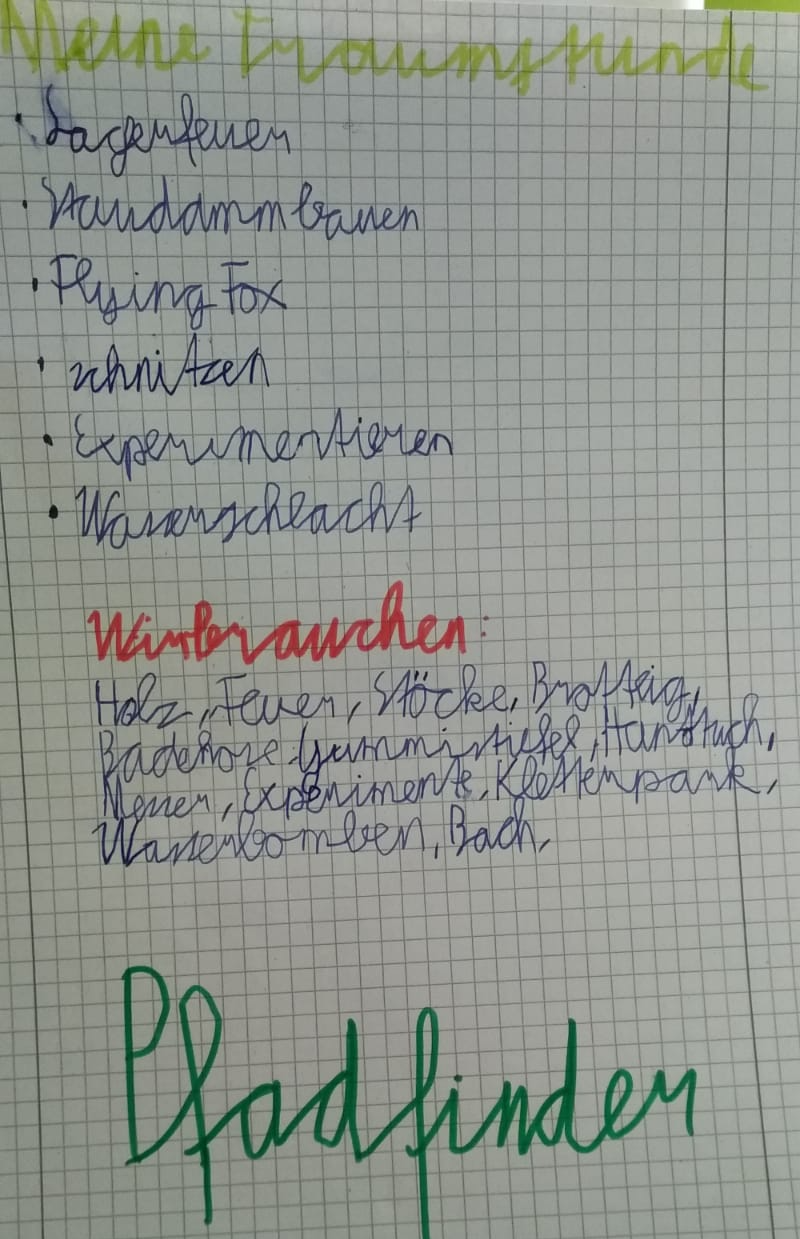 Meine Traumstunde
· Lagerfeuer
· Staudamm bauen
· Flying Fox
· schnitzen
· Experimentieren
· Wasserschlacht
Wir brauchen:
Holz, Feuer, Stöcke, Brotteig,
Badehose, Gummistiefel, Handtuch,
Messer, Experimente, Kletterpark,
Wasserbomben, Bach,
Pfadfinder